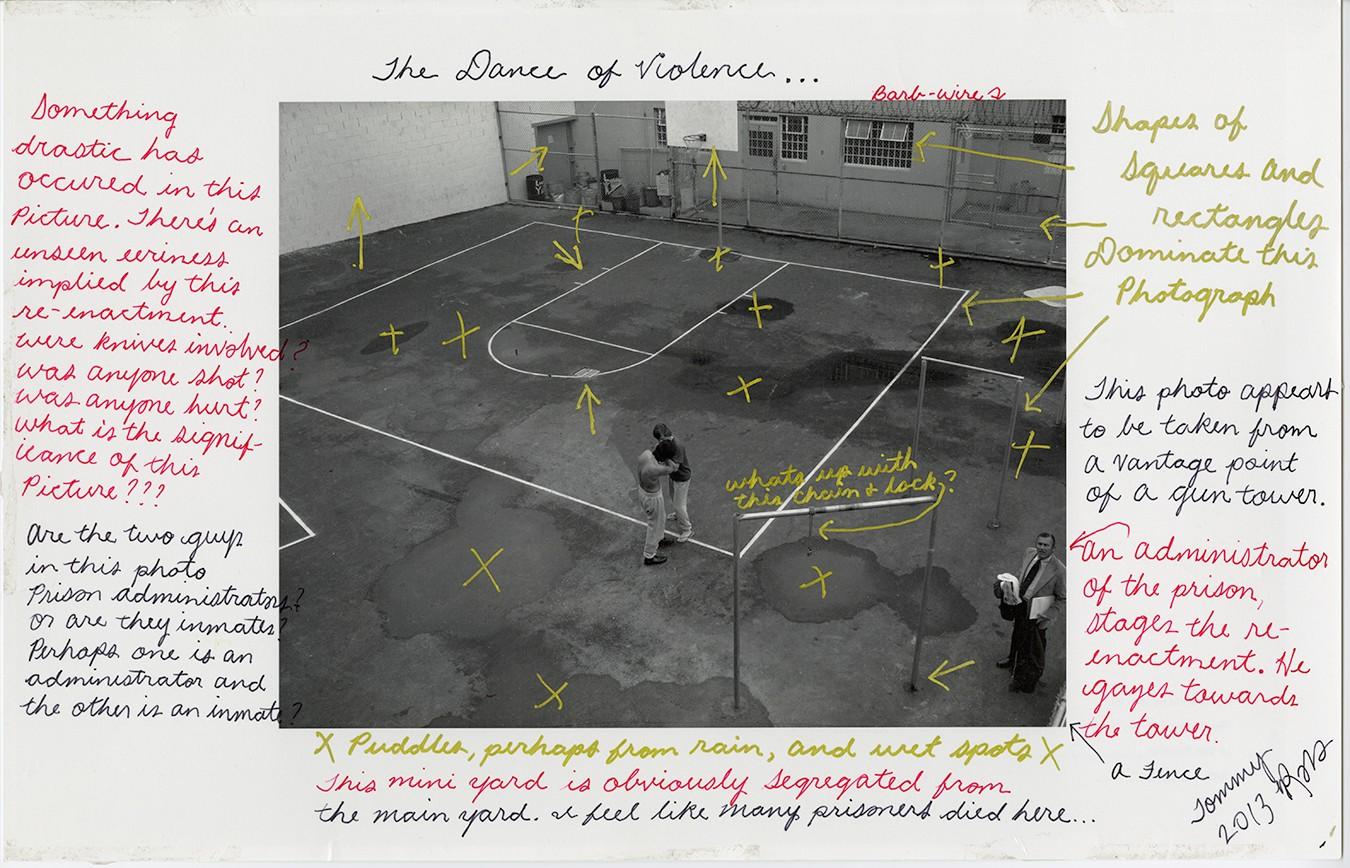 The Dance of Violence...
Barb-wires
Something
drastic has
occured in this
Picture. There's an
unseen eeriness
implied by this
re-enactment.
were knives involved?
was anyone shot?
was anyone hurt?
what is the signif-
icance of this
Picture???
Are the two guys
in this photo
Prison administrators?
or are they inmates?
Perhaps one is an
administrator and
the other is an inmate?
whats up with
this chain & lock?
Shapes of
Squares and
rectangles
Dominate this
Photograph
This photo appears
to be taken from
a vantage point
of a gun tower.
an administrator
of the prison,
stages the re-
enactment. He
gazes towards
the tower.
a Fence
X Puddles, perhaps from rain, and wet spots X
This mini yard is obviously segregated from
the main yard. I feel like many prisoners died here...
Tommy
2013